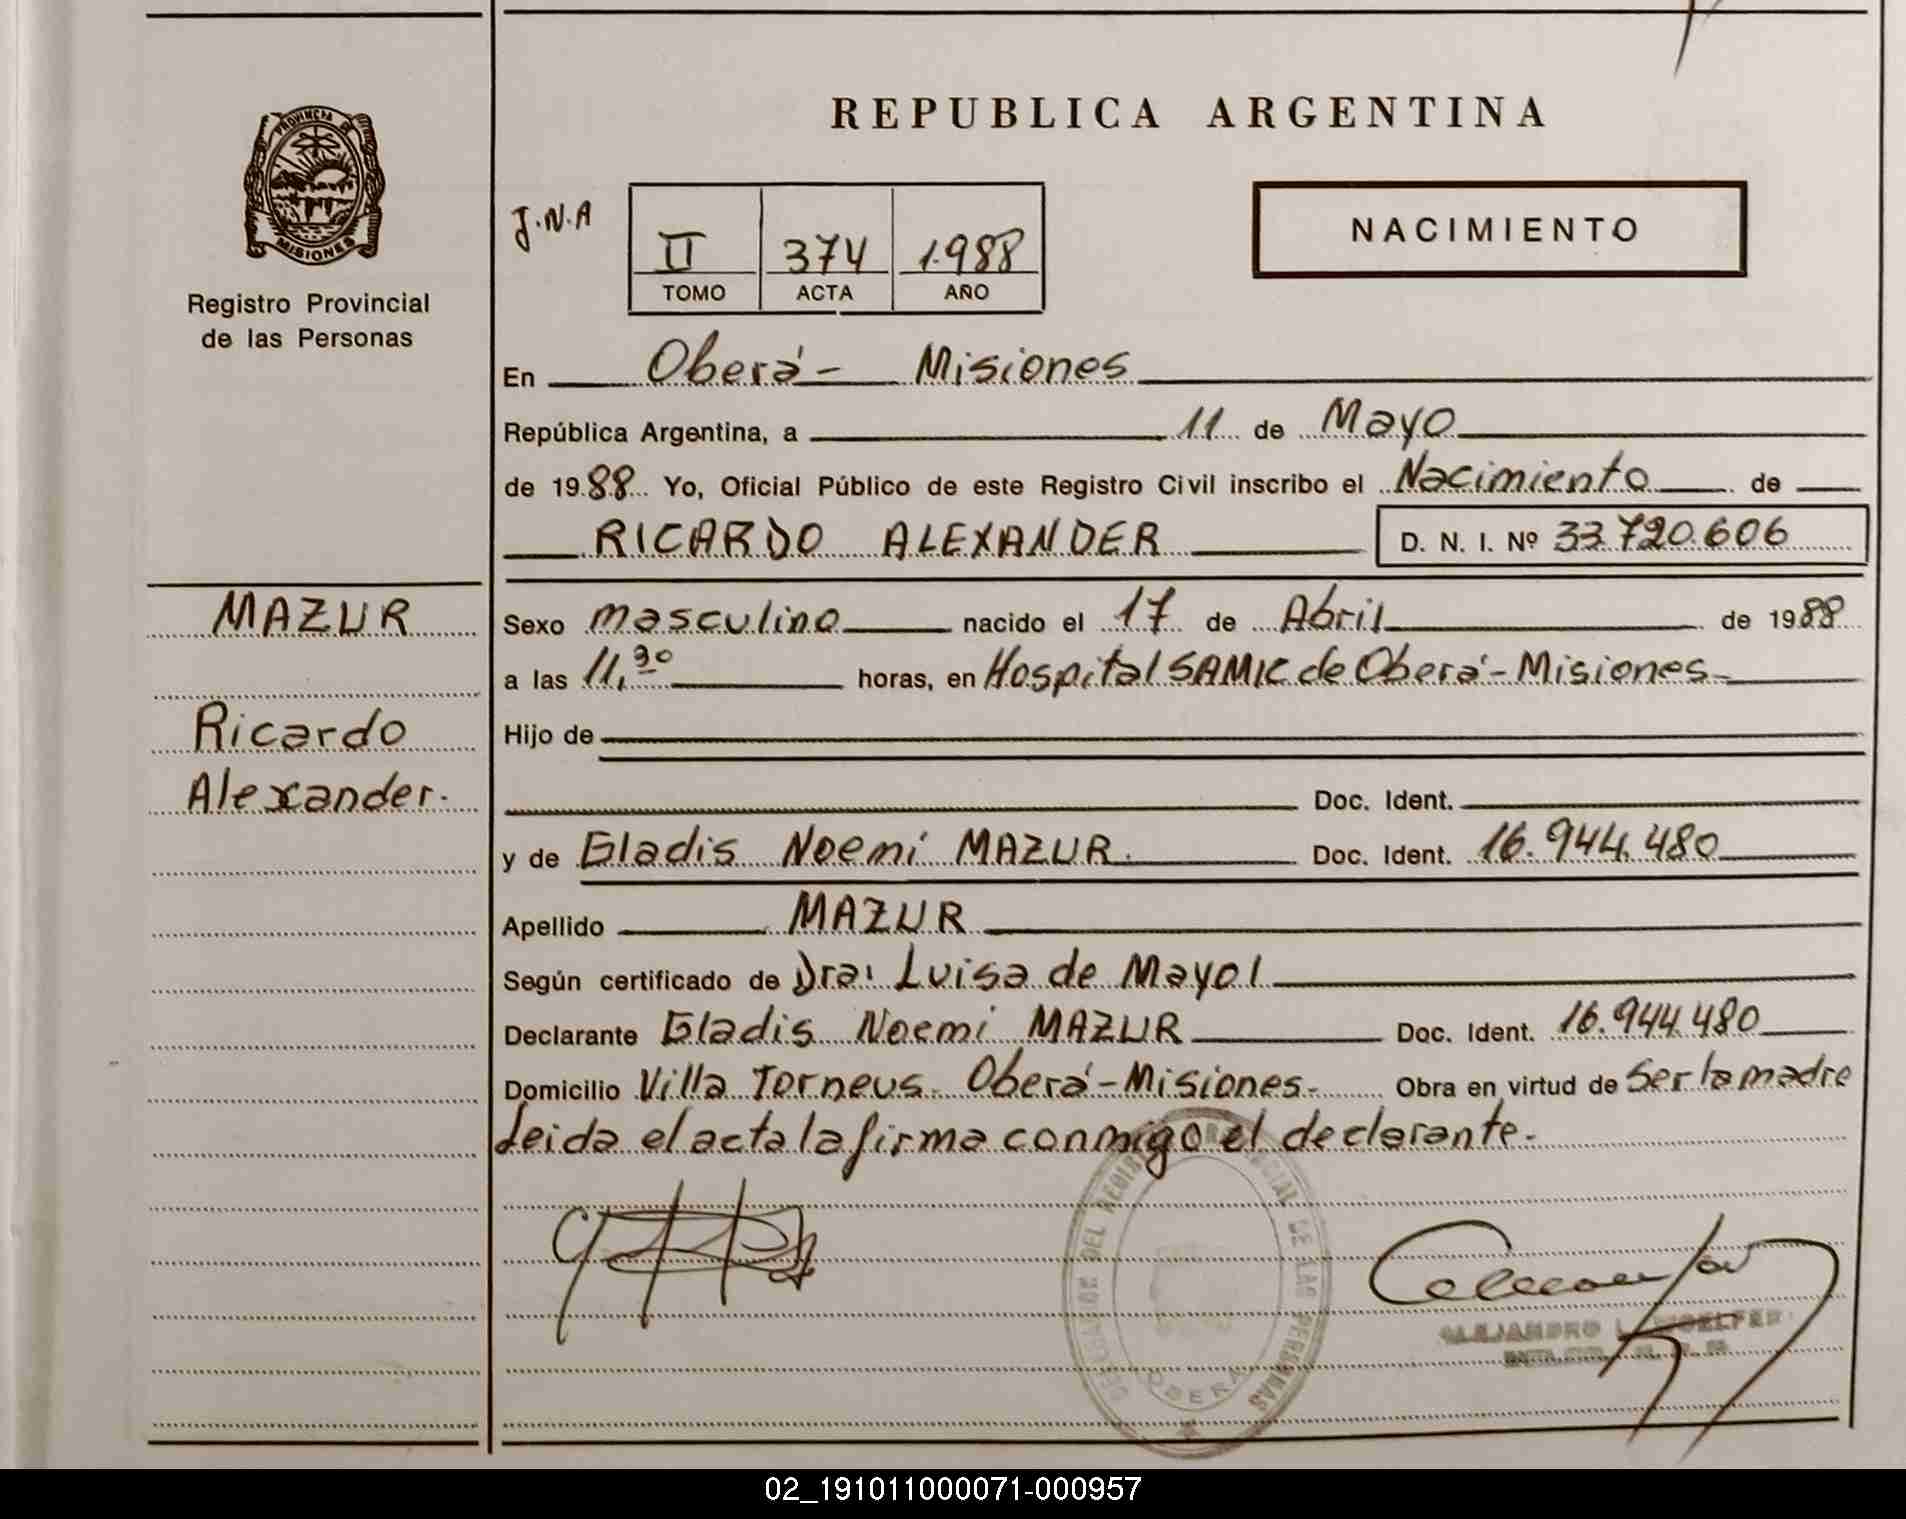 PROVINCIA DE
MISIONES
Registro Provincial
de las Personas
MAZUR
Ricardo
Alexander.
REPUBLICA ARGENTINA
J.N.A
II 374 1.988
TOMO ACTA AÑO
NACIMIENTO
En Oberá - Misiones
República Argentina, a 11 de Mayo
de 1988 Yo, Oficial Público de este Registro Civil inscribo el Nacimiento de
RICARDO ALEXANDER D. N. I. Nº 33.720.606
Sexo masculino nacido el 17 de Abril de 1988
a las 11,30 horas, en Hospital SAMIC de Oberá - Misiones
Hijo de
Doc. Ident.
y de Gladis Noemí MAZUR. Doc. Ident. 16.944.480
Apellido MAZUR
Según certificado de Dra: Luisa de Mayol
Declarante Gladis Noemí MAZUR Doc. Ident. 16.944.480
Domicilio Villa Torneus. Oberá - Misiones. Obra en virtud de Ser la madre
Leida el acta la firma conmigo el declarante.
DEL REGISTRO PROVINCIAL DE LAS PERSONAS
OBERA
ALEJANDRO
02_191011000071-000957